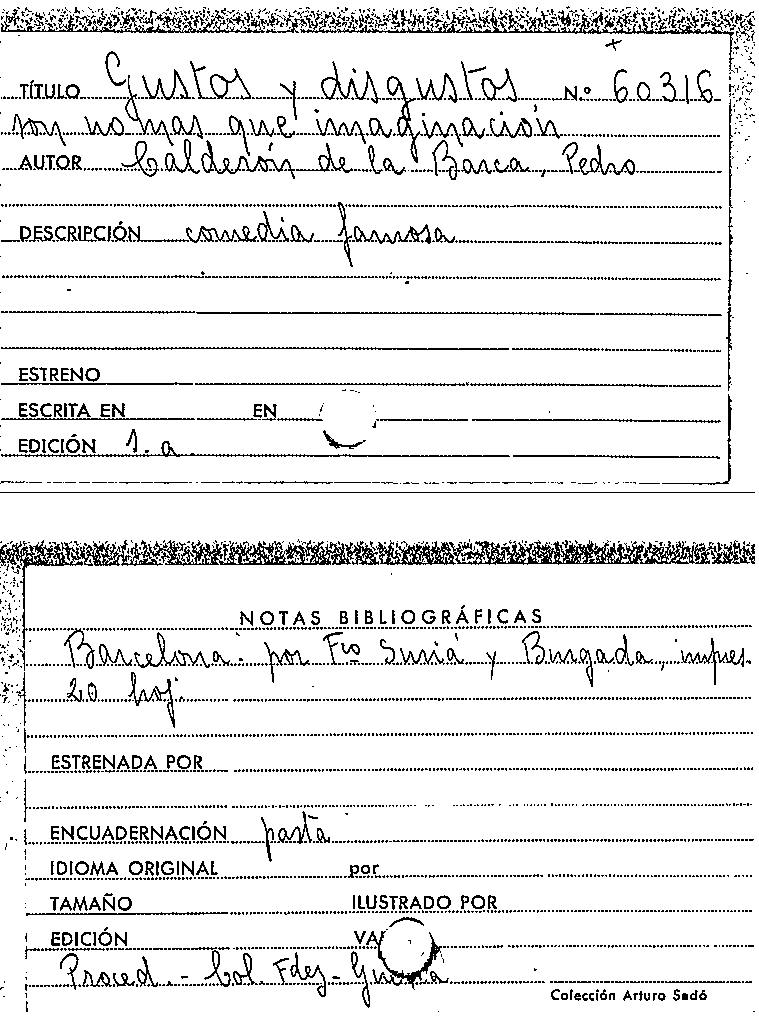 TÍTULO Gustos y disgustos N.º 60316
son no mas que imaginación
AUTOR Calderón de la Barca, Pedro
DESCRIPCIÓN comedia famosa
ESTRENO
ESCRITA EN EN
EDICIÓN 1.a
NOTAS BIBLIOGRÁFICAS
Barcelona: por Fco Suriá y Burgada, impres.
20 hoj.
ESTRENADA POR
ENCUADERNACIÓN pasta
IDIOMA ORIGINAL por
TAMAÑO ILUSTRADO POR
EDICIÓN
Proced. - Col. Fdez - Guerra
Colección Arturo Sedó